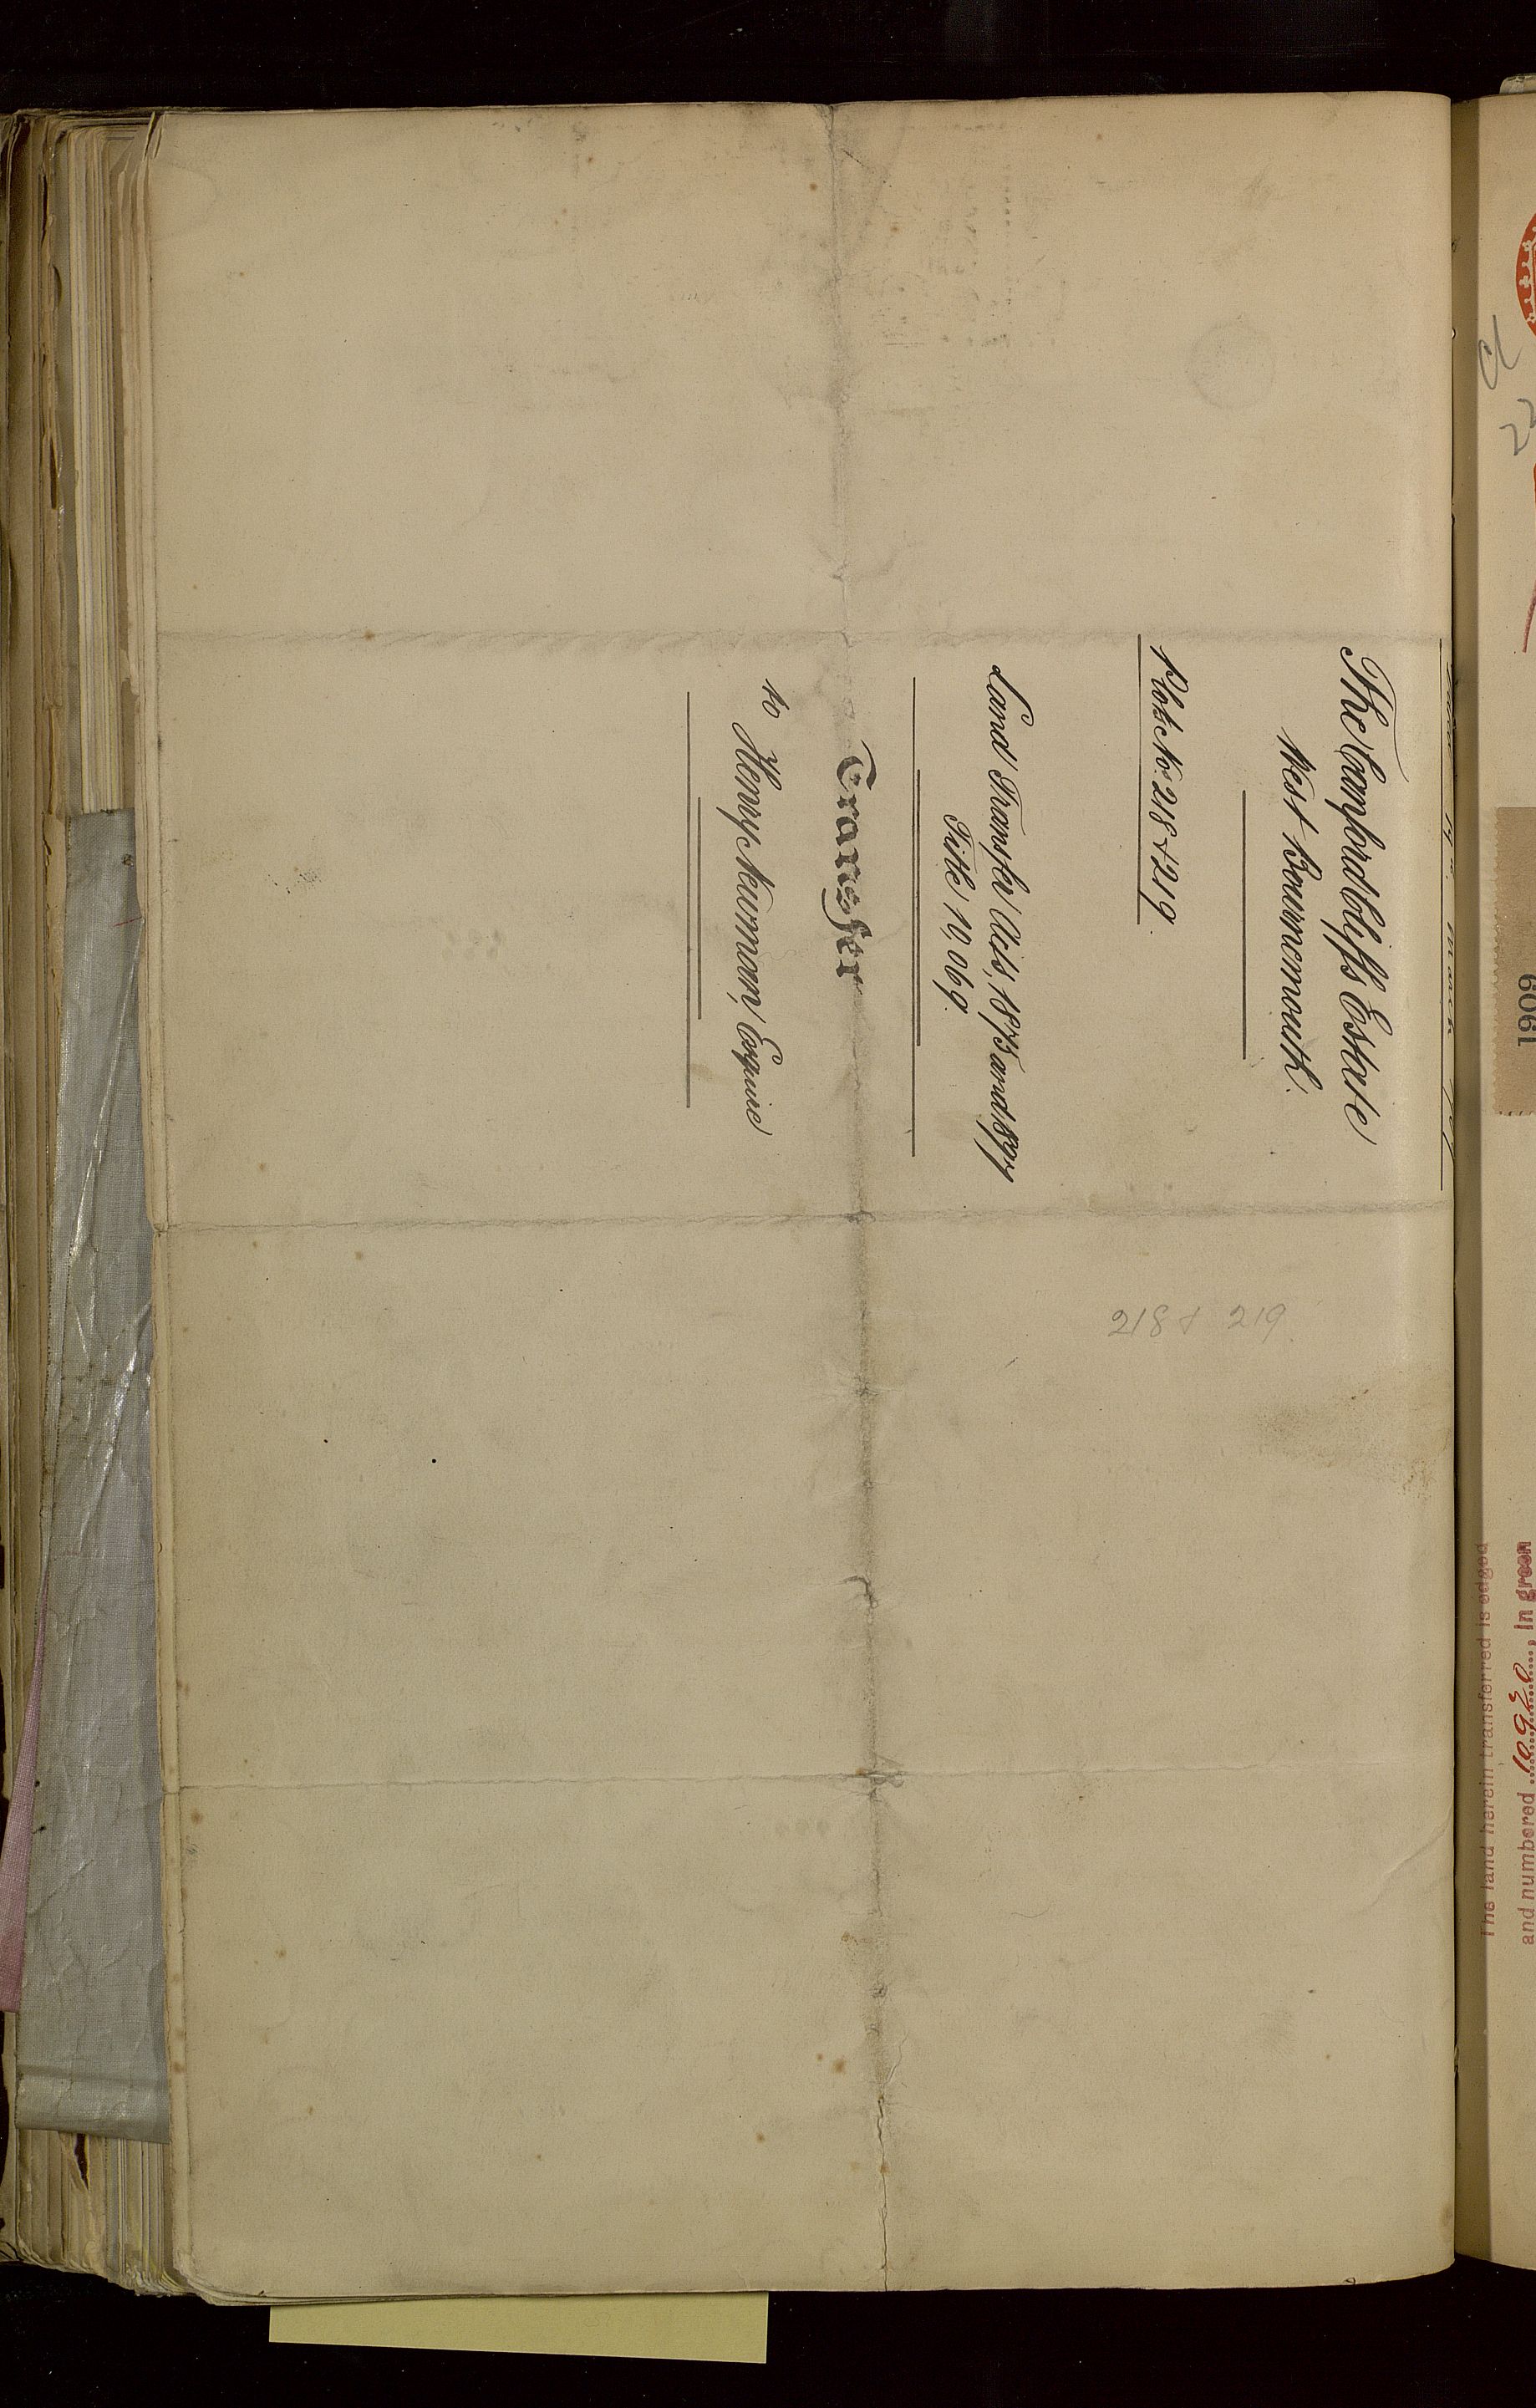 The Canford Cliffs Estate
West Bournemouth.
Plots Nos. 218 & 219.
Land Transfer Acts, 1875 and 1897
Title 19,069.
Transfer
to Henry Newman, Esquire
218 & 219
1909
The land herein transferred is edged
and numbered 10920, in green